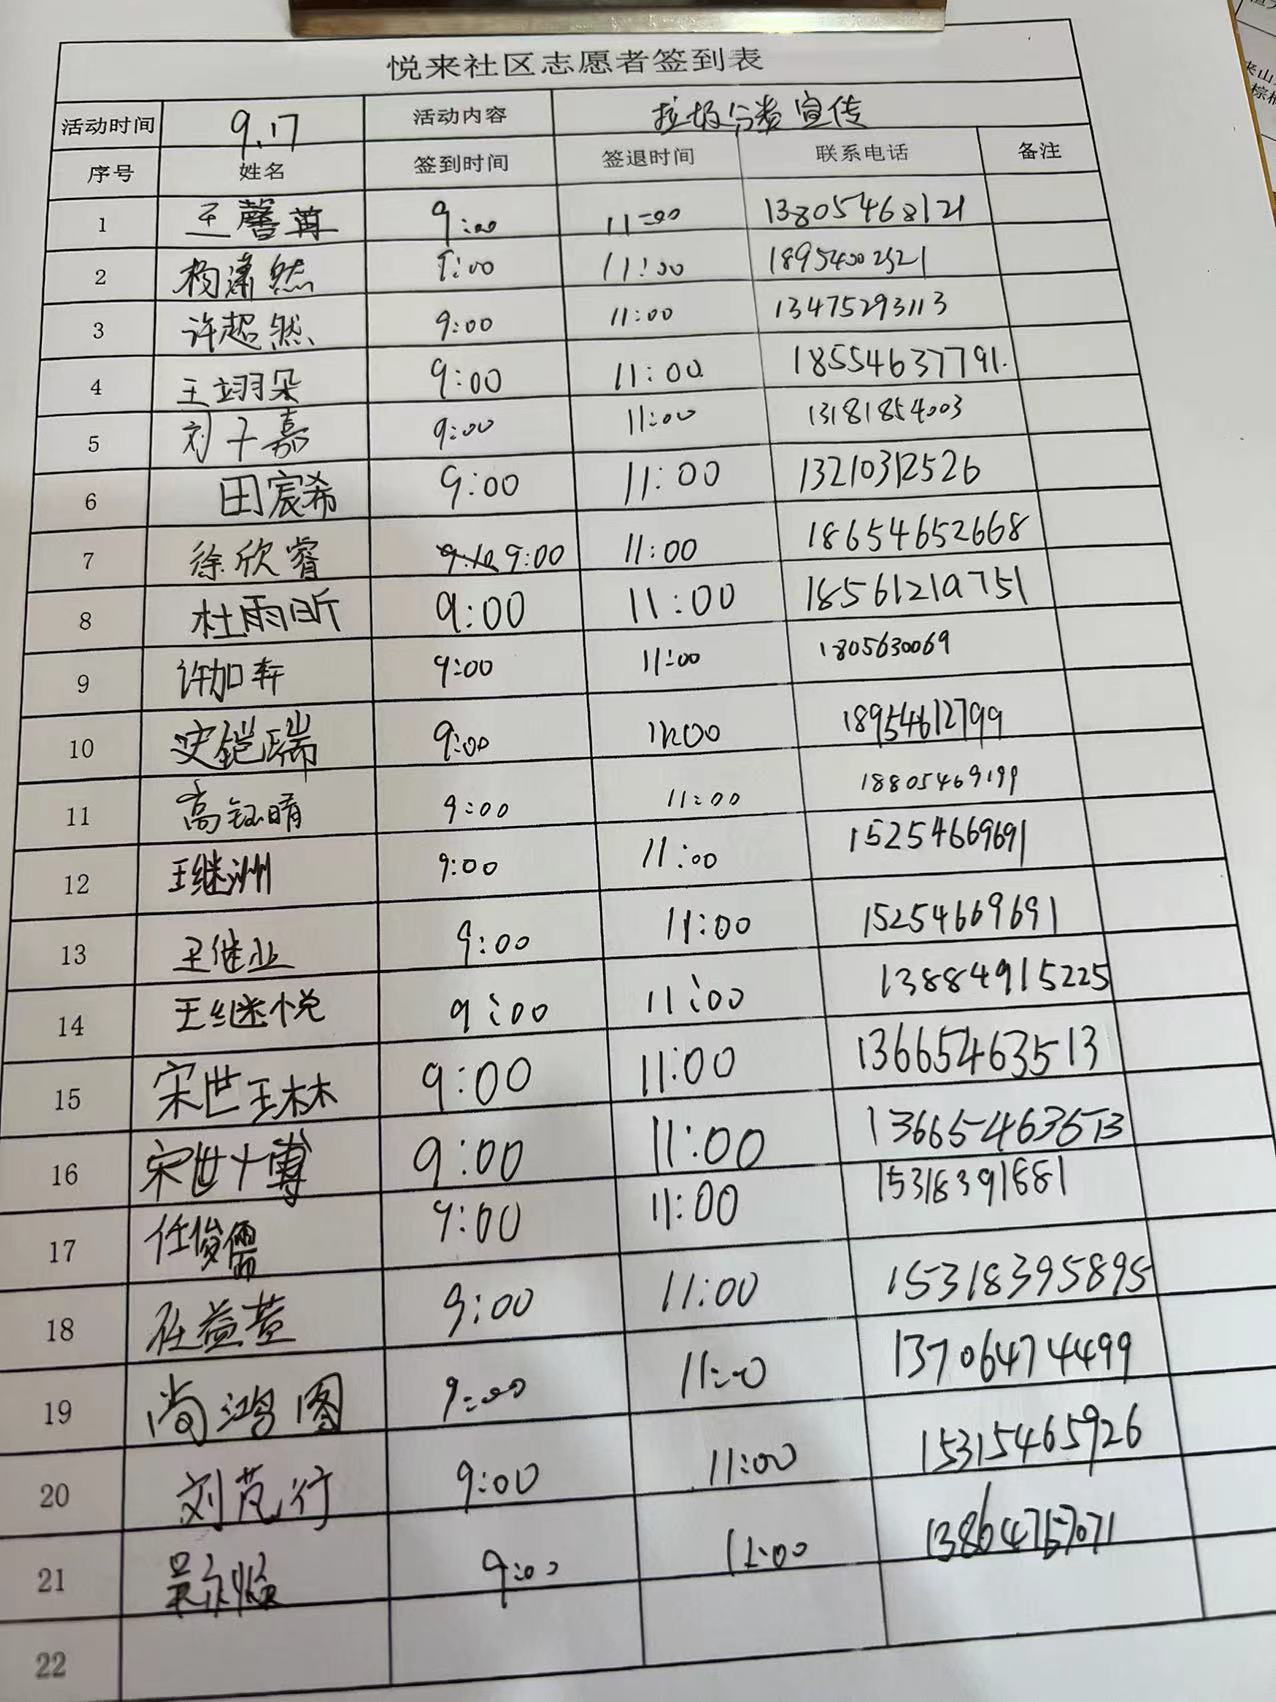 悦来社区志愿者签到表
活动时间 9.17 活动内容 垃圾分类宣传
序号 姓名 签到时间 签退时间 联系电话 备注
1 王馨苒 9:00 11:00 13805468121
2 杨潇然 9:00 11:00 18954002521
3 许超然 9:00 11:00 13475293113
4 王翊朵 9:00 11:00 18554637791.
5 刘子嘉 9:00 11:00 13181854003
6 田宸希 9:00 11:00 13210312526
7 徐欣睿 9:00 11:00 18654652668
8 杜雨昕 9:00 11:00 18561210751
9 许加轩 9:00 11:00 1805630069
10 史铠瑞 9:00 11:00 18954612799
11 高钰晴 9:00 11:00 18805469199
12 王继洲 9:00 11:00 15254669691
13 王继业 9:00 11:00 15254669691
14 王继悦 9:00 11:00 13884915225
15 宋世琳 9:00 11:00 13665463513
16 宋世博 9:00 11:00 13665463513
17 任俊儒 9:00 11:00 15318391881
18 9:00 11:00 15318395895
19 尚鸿图 9:00 11:00 13706474499
20 刘芃行 9:00 11:00 15315465926
21 9:00 11:00
22